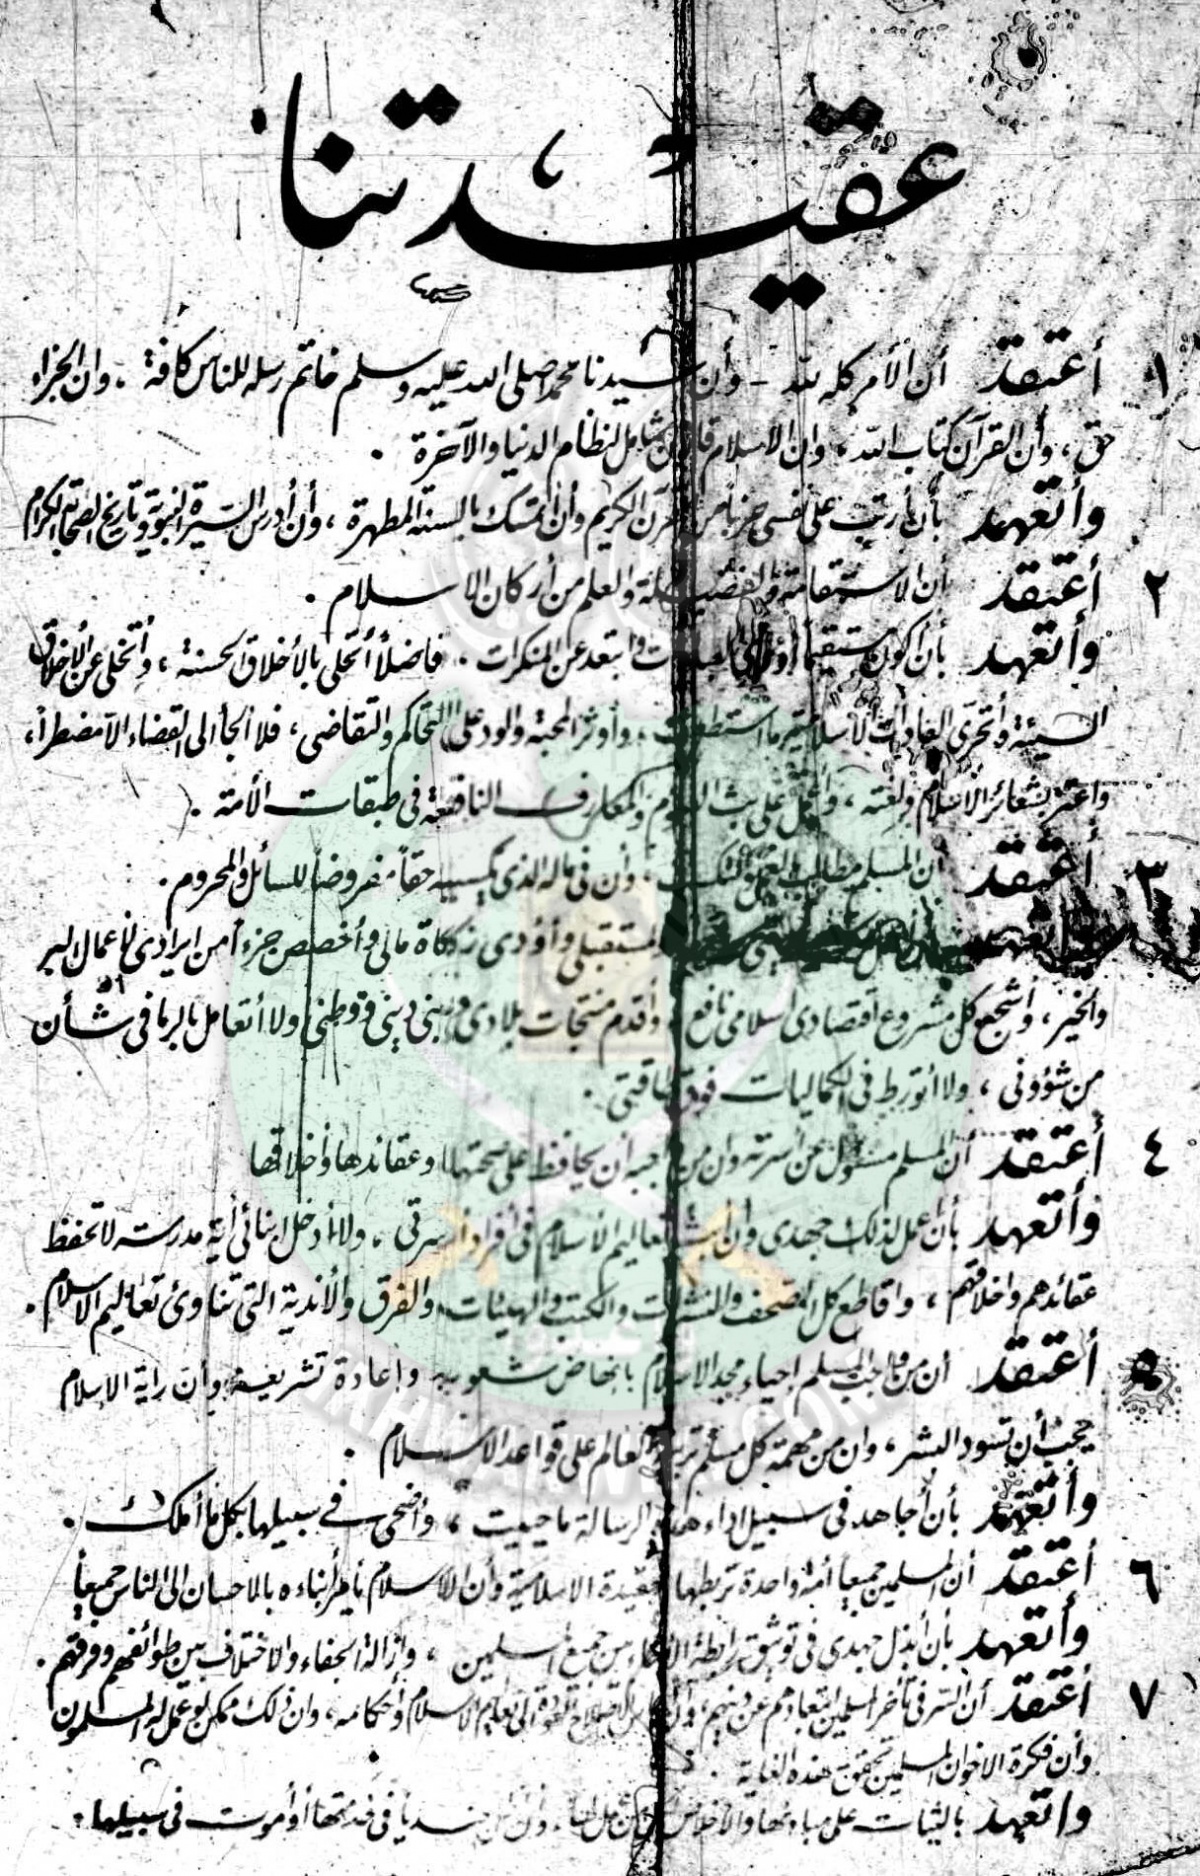 عقيدتنا
١ أعتقد أن الأمر كله لله - وأن سيدنا محمدا صلى الله عليه وسلم خاتم رسله للناس كافة ، وان الجزاء
حق ، وأن القرآن كتاب الله ، وان الاسلام قانون شامل لنظام الدنيا والآخرة .
وأتعهد بأن أرتب على نفسى حزبا من القرآن الكريم وأن أتمسك بالسنة المطهرة ، وأن أدرس السيرة النبوية وتاريخ الصحابة الكرام
٢ أعتقد أن الاستقامة والفضيلة والعلم من أركان الاسلام .
وأتعهد بأن أكون مستقيما أؤدى العبادات وابتعد عن المنكرات ، فاضلا أتحلى بالأخلاق الحسنة ، وأتخلى عن الأخلاق
السيئة وأتحرى العادات الاسلامية ما استطعت ، وأوثر المحبة والود على التحاكم والتقاضى ، فلا ألجأ الى القضاء الا مضطرا ،
واعتز بشعائر الاسلام ولغته ، وأعمل على بث العلوم والمعارف النافعة فى طبقات الأمة .
٣ أعتقد أن المسلم مطالب بالعمل والتكسب ، وأن فى ماله الذى يكسبه حقا مفروضا للسائل والمحروم .
وأتعهد بأن أعمل المستقبلى وأؤدى زكاة مالى وأخصص جزءا من ايرادى لأعمال البر
والخير ، وأشجع كل مشروع اقتصادى اسلامى نافع ، وأقدم منتجات بلادى وبنى دينى ووطنى ولا أتعامل بالربا فى شأن
من شؤونى ، ولا أتورط فى الكماليات فوق طاقتى .
٤ أعتقد أن المسلم مسئول عن أسرته وان من واجبه أن يحافظ على صحتها وعقائدها وأخلاقها
وأتعهد بأن أعمل لذلك جهدى وان أبث تعاليم الاسلام فى أفراد أسرتى ، ولا أدخل ابنائى أية مدرسة لا تحفظ
عقائدهم واخلاقهم ، واقاطع كل الصحف والنشرات والكتب والهيئات والفرق والأندية التى تناوئ تعاليم الاسلام .
٥ أعتقد أن من واجب المسلم إحياء مجد الاسلام بانهاض شعوبه وإعادة تشريعه ، وأن راية الاسلام
يجب أن تسود البشر ، وان من مهمة كل مسلم تربية العالم على قواعد الاسلام .
وأتعهد بأن أجاهد فى سبيل اداء هذه الرسالة ما حييت ، وأضحى فى سبيلها بكل ما أملك .
٦ أعتقد أن المسلمين جميعا أمة واحدة تربطها العقيدة الاسلامية وأن الاسلام يأمر أبناءه بالاحسان الى الناس جميعا
وأتعهد بأن أبذل جهدى فى توثيق رابطة الاخاء بين جميع المسلمين ، وازالة الجفاء والاختلاف بين طوائفهم وفرقهم .
٧ أعتقد أن السر فى تأخر المسلمين ابتعادهم عن دينهم ، وأن أساس الاصلاح العودة الى تعاليم الاسلام واحكامه ، وان ذلك ممكن لو عمل له المسلمون
وأن فكرة الاخوان المسلمين تحقق هذه الغاية
وأتعهد بالثبات على مبادئها والاخلاص لكل من عمل لها ، وأن أظل جنديا فى خدمتها أو أموت فى سبيلها .